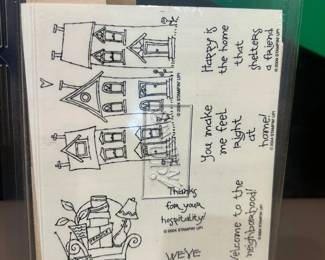 Happy is
the home
that
shelters
a friend
© 2004 STAMPIN' UP!
You make
me feel
right
at
home!
© 2004 STAMPIN' UP!
Thanks
for your
hospitality!
© 2004 STAMPIN' UP!
Welcome to the
neighborhood!
WE'VE